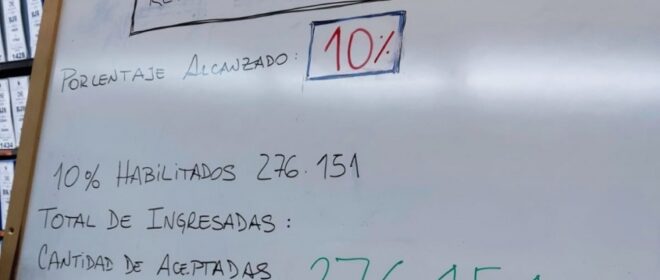 PORCENTAJE ALCANZADO: 10%
10% HABILITADOS 276.151
TOTAL DE INGRESADAS:
CANTIDAD DE ACEPTADAS